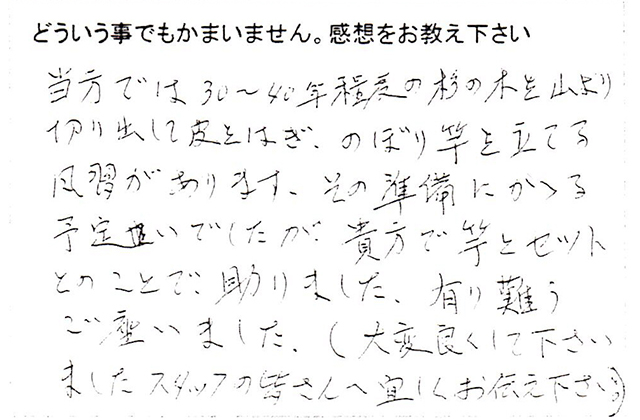 どういう事でもかまいません。感想をお教え下さい
当方では30〜40年程度の杉の木を山より
切り出して皮をはぎ、のぼり竿を立てる
風習があります、その準備にかゝる
予定でしたが、貴方で竿とセット
とのことで、助りました、有り難う
ご座いました、（大変良くして下さい
ましたスタッフの皆さんへ宜しくお伝え下さい）